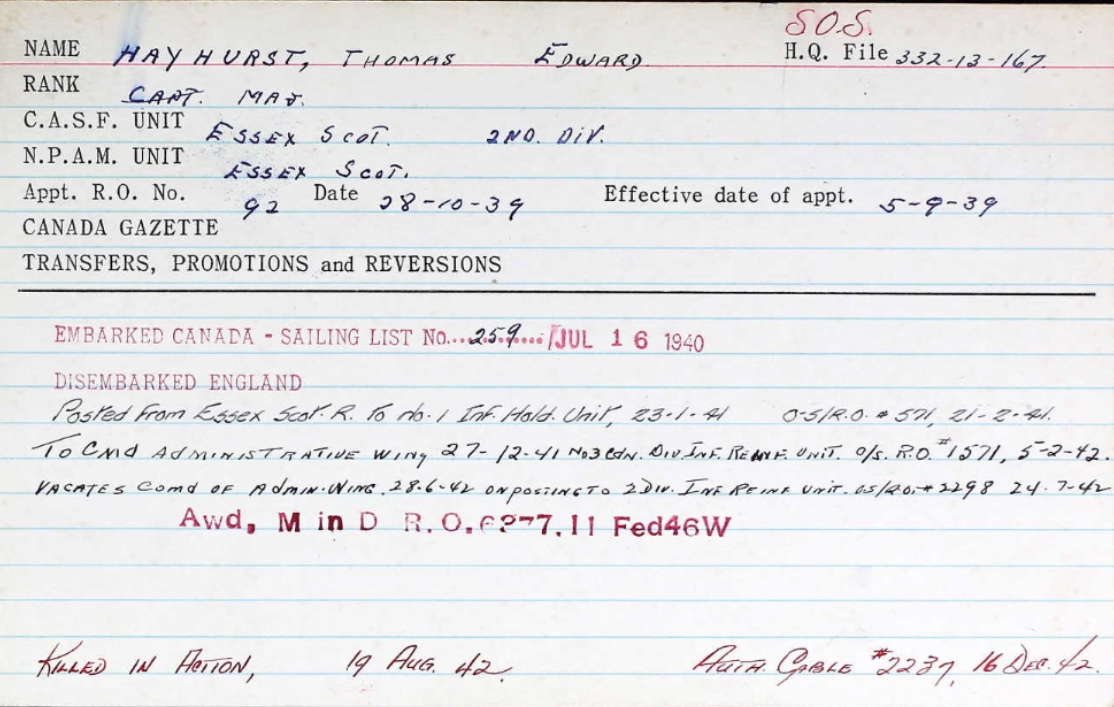 S.O.S.
NAME HAYHURST, THOMAS EDWARD. H.Q. File 332-13-167.
RANK CAPT. MAJ.
C.A.S.F. UNIT ESSEX SCOT. 2ND. DIV.
N.P.A.M. UNIT ESSEX SCOT.
Appt. R.O. No. 92 Date 28-10-39 Effective date of appt. 5-9-39
CANADA GAZETTE
TRANSFERS, PROMOTIONS and REVERSIONS
EMBARKED CANADA - SAILING LIST No....259.... JUL 16 1940
DISEMBARKED ENGLAND
Posted from Essex Scot. R. to No. 1 Inf. Hold. Unit, 23-1-41 O-S/R.O. # 571, 21-2-41.
TO CMD ADMINISTRATIVE WING 27-12-41 No3 CDN. DIV INF. REINF. UNIT. O/S. R.O. #1571, 5-2-42.
VACATES COMD OF ADMIN. WING. 28-6-42 ON POSTING TO 2 DIV. INF REINF UNIT. OS/RO. #2298 24-7-42
Awd, M in D R.O. 11 Fed46W
KILLED IN ACTION, 19 AUG. 42. AUTH. CABLE #2237, 16 DEC. 42.